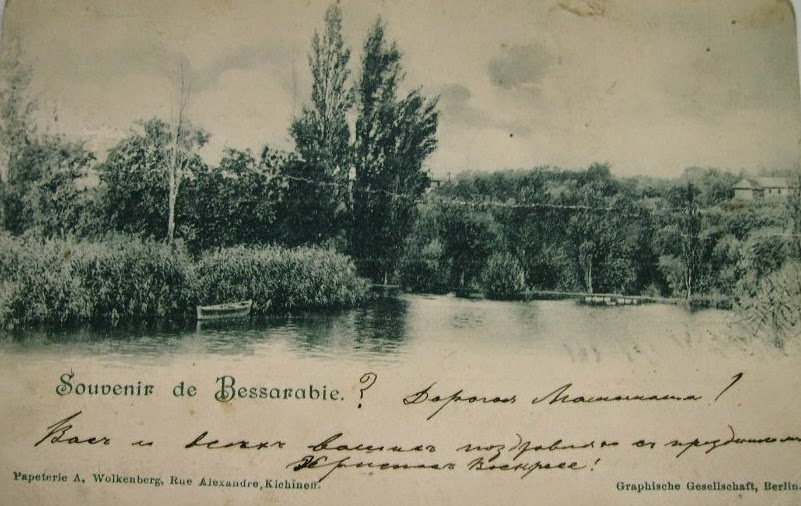 Souvenir de Bessarabie. ? Дорогая Мамочка!
Васъ и всехъ вашихъ поздравляю съ праздникомъ
Христосъ Воскресе!
Papeterie A. Wolkenberg, Rue Alexandre, Kichineff.
Graphische Gesellschaft, Berlin.